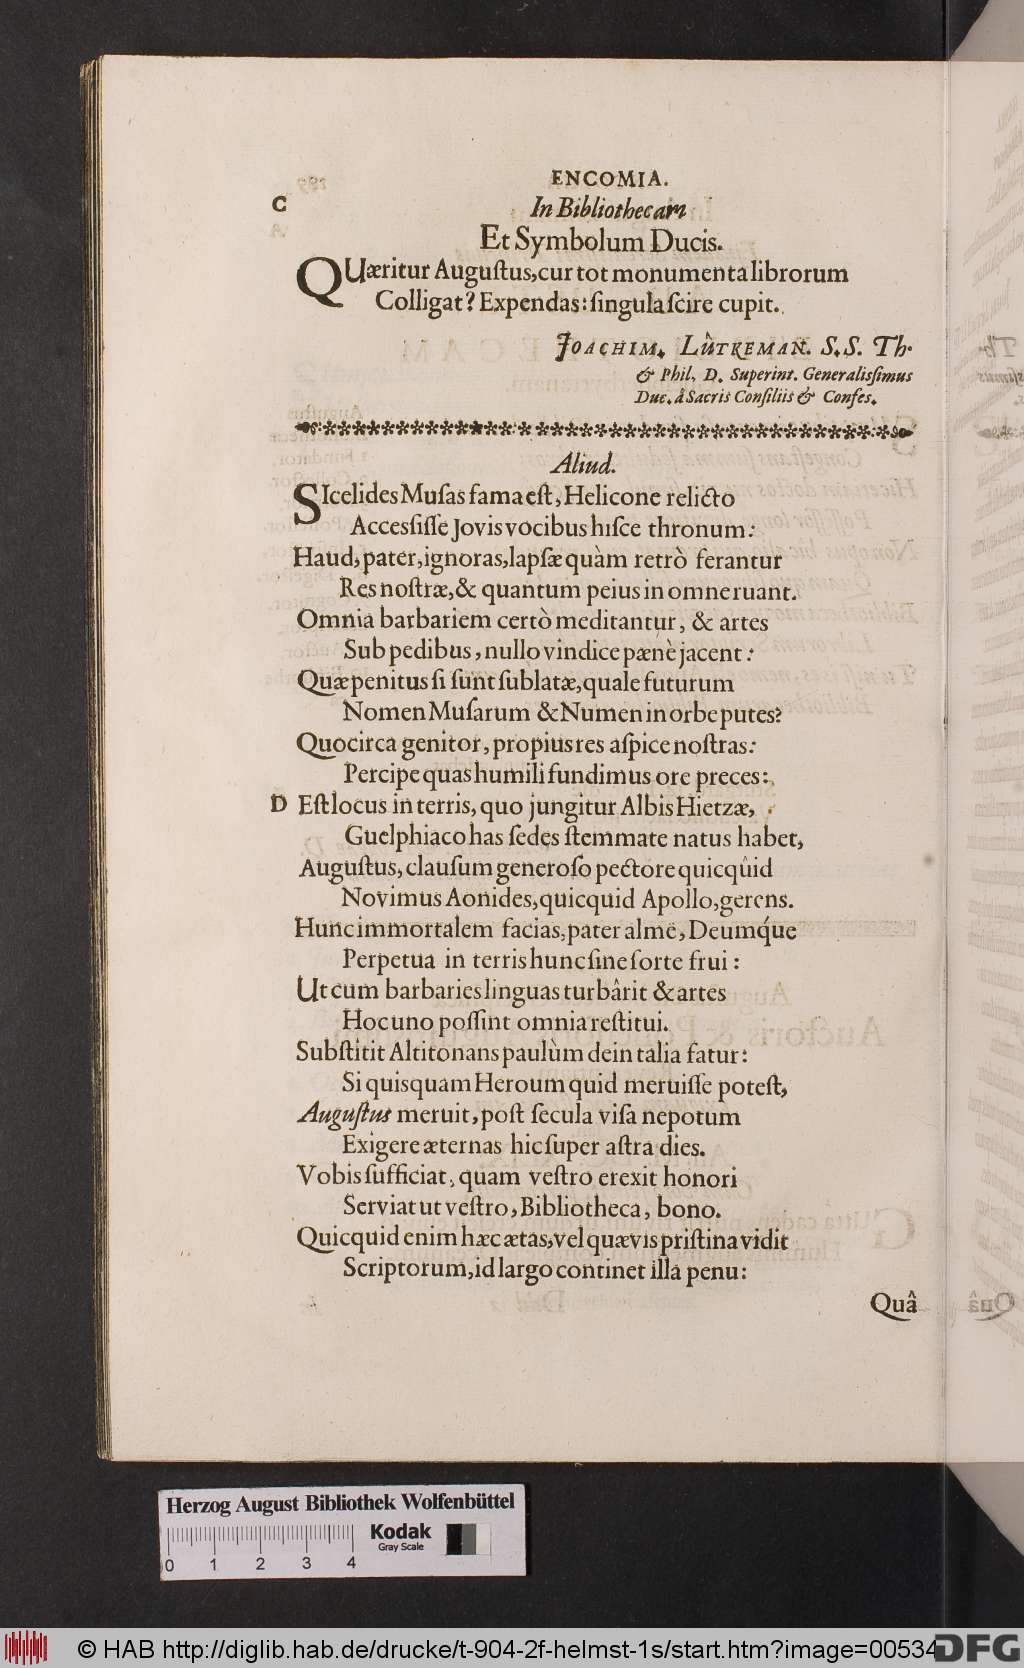 ENCOMIA.
C
In Bibliothecam
Et Symbolum Ducis.
QUæritur Auguſtus, cur tot monumenta librorum
Colligat? Expendas: ſingula ſcire cupit.
JOACHIM. LÙTKEMAN. S.S. Th.
& Phil. D. Superint. Generaliſſimus
Duc. â Sacris Conſiliis & Confeſ.
Aliud.
SIcelides Muſas fama eſt, Helicone relicto
Acceſſiſſe Jovis vocibus hiſce thronum:
Haud, pater, ignoras, lapſæ quàm retrò ferantur
Res noſtræ, & quantum peius in omne ruant.
Omnia barbariem certò meditantur, & artes
Sub pedibus, nullo vindice pænè jacent:
Quæ penitus ſi ſunt ſublatæ, quale futurum
Nomen Muſarum & Numen in orbe putes?
Quocirca genitor, propius res aſpice noſtras:
Percipe quas humili fundimus ore preces:
D Eſt locus in terris, quo jungitur Albis Hietzæ,
Guelphiaco has ſedes ſtemmate natus habet,
Auguſtus, clauſum generoſo pectore quicqûid
Novimus Aonides, quicquid Apollo, gerens.
Hunc immortalem facias, pater alme, Deumq́ue
Perpetua in terris hunc ſine ſorte frui:
Ut cum barbaries linguas turbârit & artes
Hoc uno poſſint omnia reſtitui.
Subſtitit Altitonans paulùm dein talia fatur:
Si quisquam Heroum quid meruiſſe poteſt,
Auguſtus meruit, poſt ſecula viſa nepotum
Exigere æternas hic ſuper aſtra dies.
Vobis ſufficiat, quam veſtro erexit honori
Serviat ut veſtro, Bibliotheca, bono.
Quicquid enim hæc ætas, vel quævis priſtina vidit
Scriptorum, id largo continet illa penu:
Quâ
Herzog August Bibliothek Wolfenbüttel
Kodak
Gray Scale
0 1 2 3 4
© HAB http://diglib.hab.de/drucke/t-904-2f-helmst-1s/start.htm?image=00534
DFG